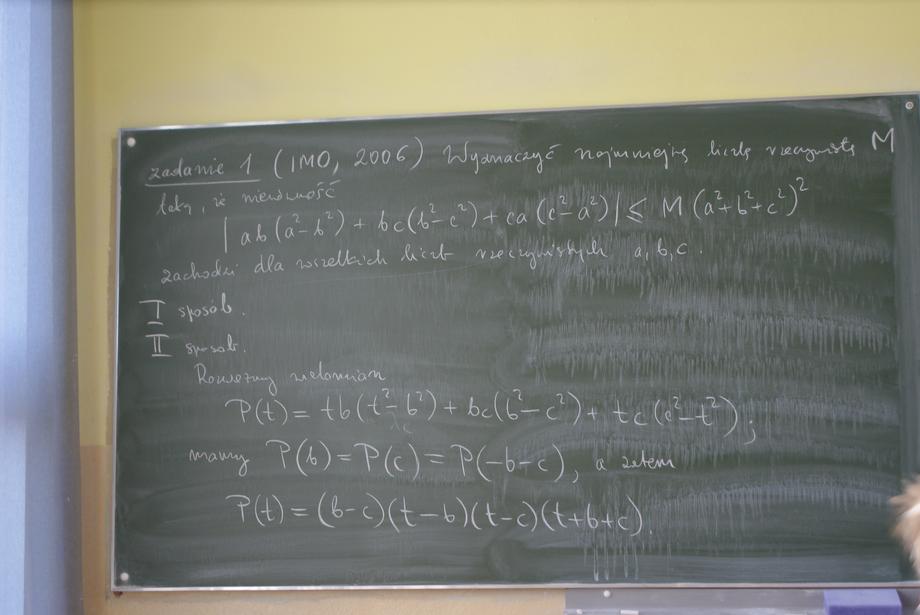 zadanie 1 (IMO, 2006) Wyznaczyć najmniejszą liczbę rzeczywistą M
taką, że nierówność
|ab(a²-b²) + bc(b²-c²) + ca(c²-a²)| ≤ M(a²+b²+c²)²
zachodzi dla wszelkich liczb rzeczywistych a, b, c.
I sposób.
II sposób.
Rozważmy wielomian
P(t) = tb(t²-b²) + bc(b²-c²) + tc(c²-t²);
mamy P(b) = P(c) = P(-b-c), a zatem
P(t) = (b-c)(t-b)(t-c)(t+b+c).